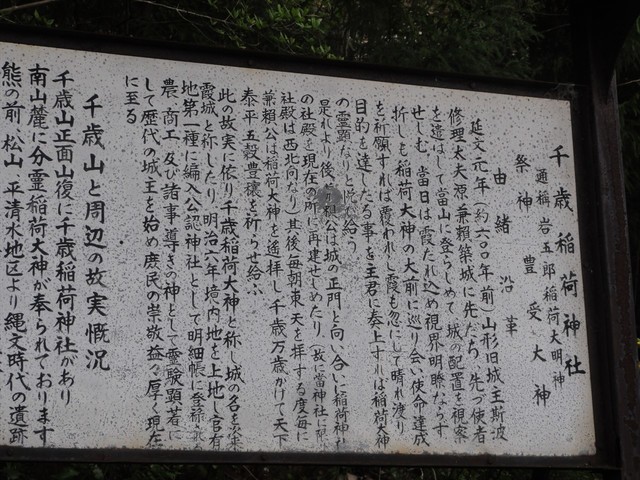 千歳稲荷神社
通稱 岩五郎稲荷大明神
祭神 豊受大神
由緒沿革
延文元年(約六〇〇年前)山形旧城主斯波
修理太夫源兼頼築城に先だち、先づ使者
を遣はして當山に登らしめて、城の配置を視察
せしむ、當日は霞たれ込め視界明瞭ならず
折しも稲荷大神の大前に巡り会い使命達成
を祈願すれば霞われし霞も忽にして晴れ渡り
目的を達したる事を主君に奏上すれば稲荷大神
の霊顕なりと給う
是れより後、頼公は城の正門と向い合いに稲荷神社
の社殿を現在の所に再建せしめたり(故に當神社に限
社殿は西北向なり)其後毎朝東天を拝する度毎に
兼頼公は稲荷大神を遥拝し千歳万歳かけて天下
泰平五穀豊穣を祈らせ給ふ
此の故実に依り千歳稲荷大神と称し城の名を
霞城と称したり、明治六年境内地を上地し官有
地第一種に編入公認神社として明細帳に登
農、商工、及び諸事導きの神として霊験顕著に
して歴代の城主を始め庶民の崇敬益々厚く現在
に至る
千歳山と周辺の故実慨況
千歳山正面山復に千歳稲荷神社があり
南山麓に分霊稲荷大神が奉られております
熊の前、松山、平清水地区より縄文時代の遺跡